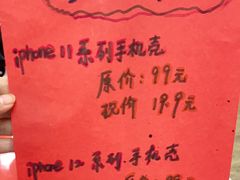 iphone 11系列手机壳
原价:99元
现价 19.9元
iphone 12 系列.手机壳